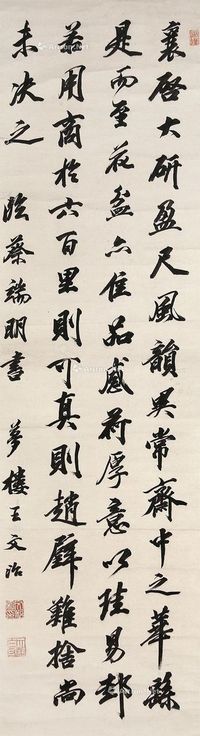 襄啓大研盈尺風韻異常齋中之華繇
是而至花盌亦佳品感荷厚意以珪易邽
若用商於六百里則可真則趙璧難捨尚
未決之
臨蔡端明書 夢樓王文治